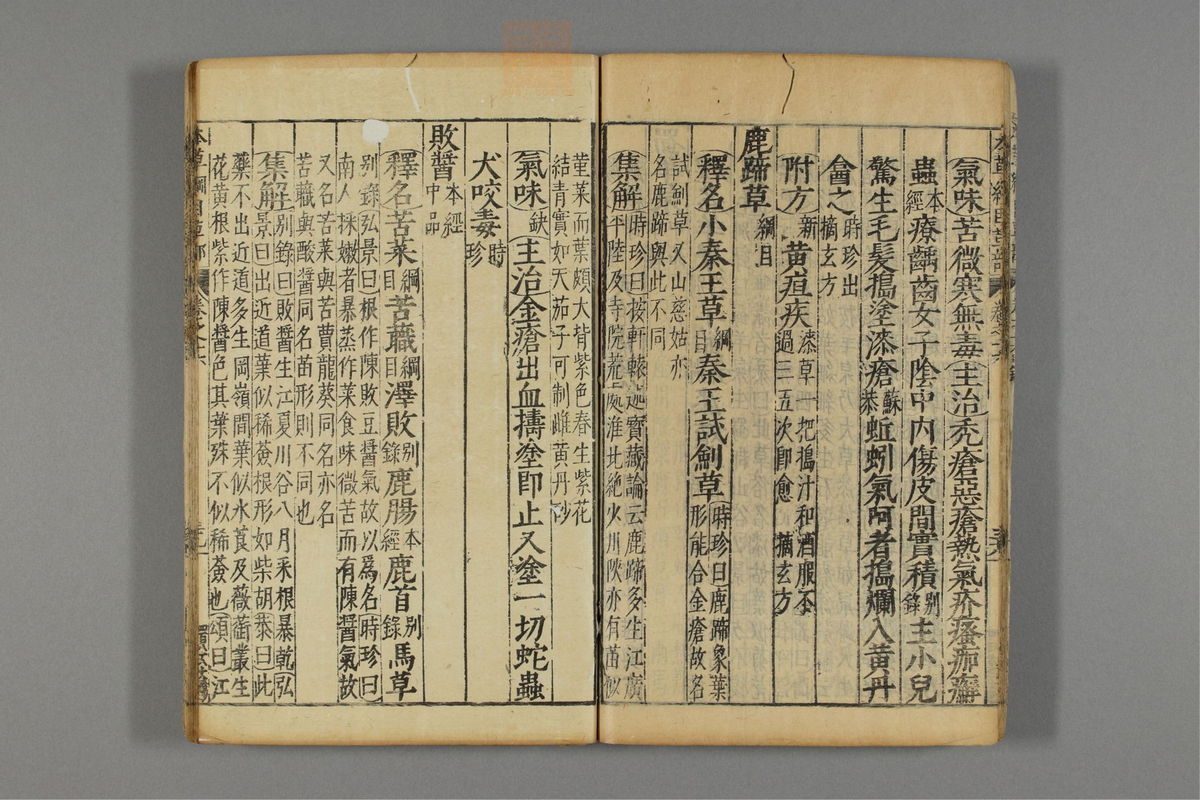 氣味苦微寒無毒主治禿瘡惡瘡熱氣疥瘙痂癩
蟲本經療齲齒女子陰中內傷皮間實積別錄主小兒
驚生毛髮搗塗漆瘡蘇恭蚯蚓氣呵者搗爛入黃丹
畲之時珍出摘玄方
附方新黃疸疾漆草一把搗汁和酒服不過三五次即愈 摘玄方
鹿蹄草綱目
釋名小秦王草綱目秦王試劍草時珍曰鹿蹄象葉形能合金瘡故名
試劍草又山慈姑亦名鹿蹄與此不同
集解時珍曰按軒轅述寶藏論云鹿蹄多生江廣平陸及寺院荒處淮北絕少川陝亦有苗似
堇菜而葉頗大背紫色春生紫花結青實如天茄子可制雌黃丹砂
氣味缺主治金瘡出血擣塗即止又塗一切蛇蟲
犬咬毒時珍
敗醬本經中品
釋名苦菜綱目苦蘵綱目澤敗別錄鹿腸本經鹿首別錄馬草
別錄弘景曰根作陳敗豆醬氣故以為名時珍曰南人採嫩者暴蒸作菜食味微苦而有陳醬氣故
又名苦菜與苦蕒龍葵同名亦名苦蘵與酸醬同名苗形則不同也
集解別錄曰敗醬生江夏川谷八月采根暴乾弘景曰出近道葉似稀薟根形如柴胡恭曰此
藥不出近道多生岡嶺間葉似水莨及薇蘅叢生花黃根紫作陳醬色其葉殊不似稀薟也頌曰江